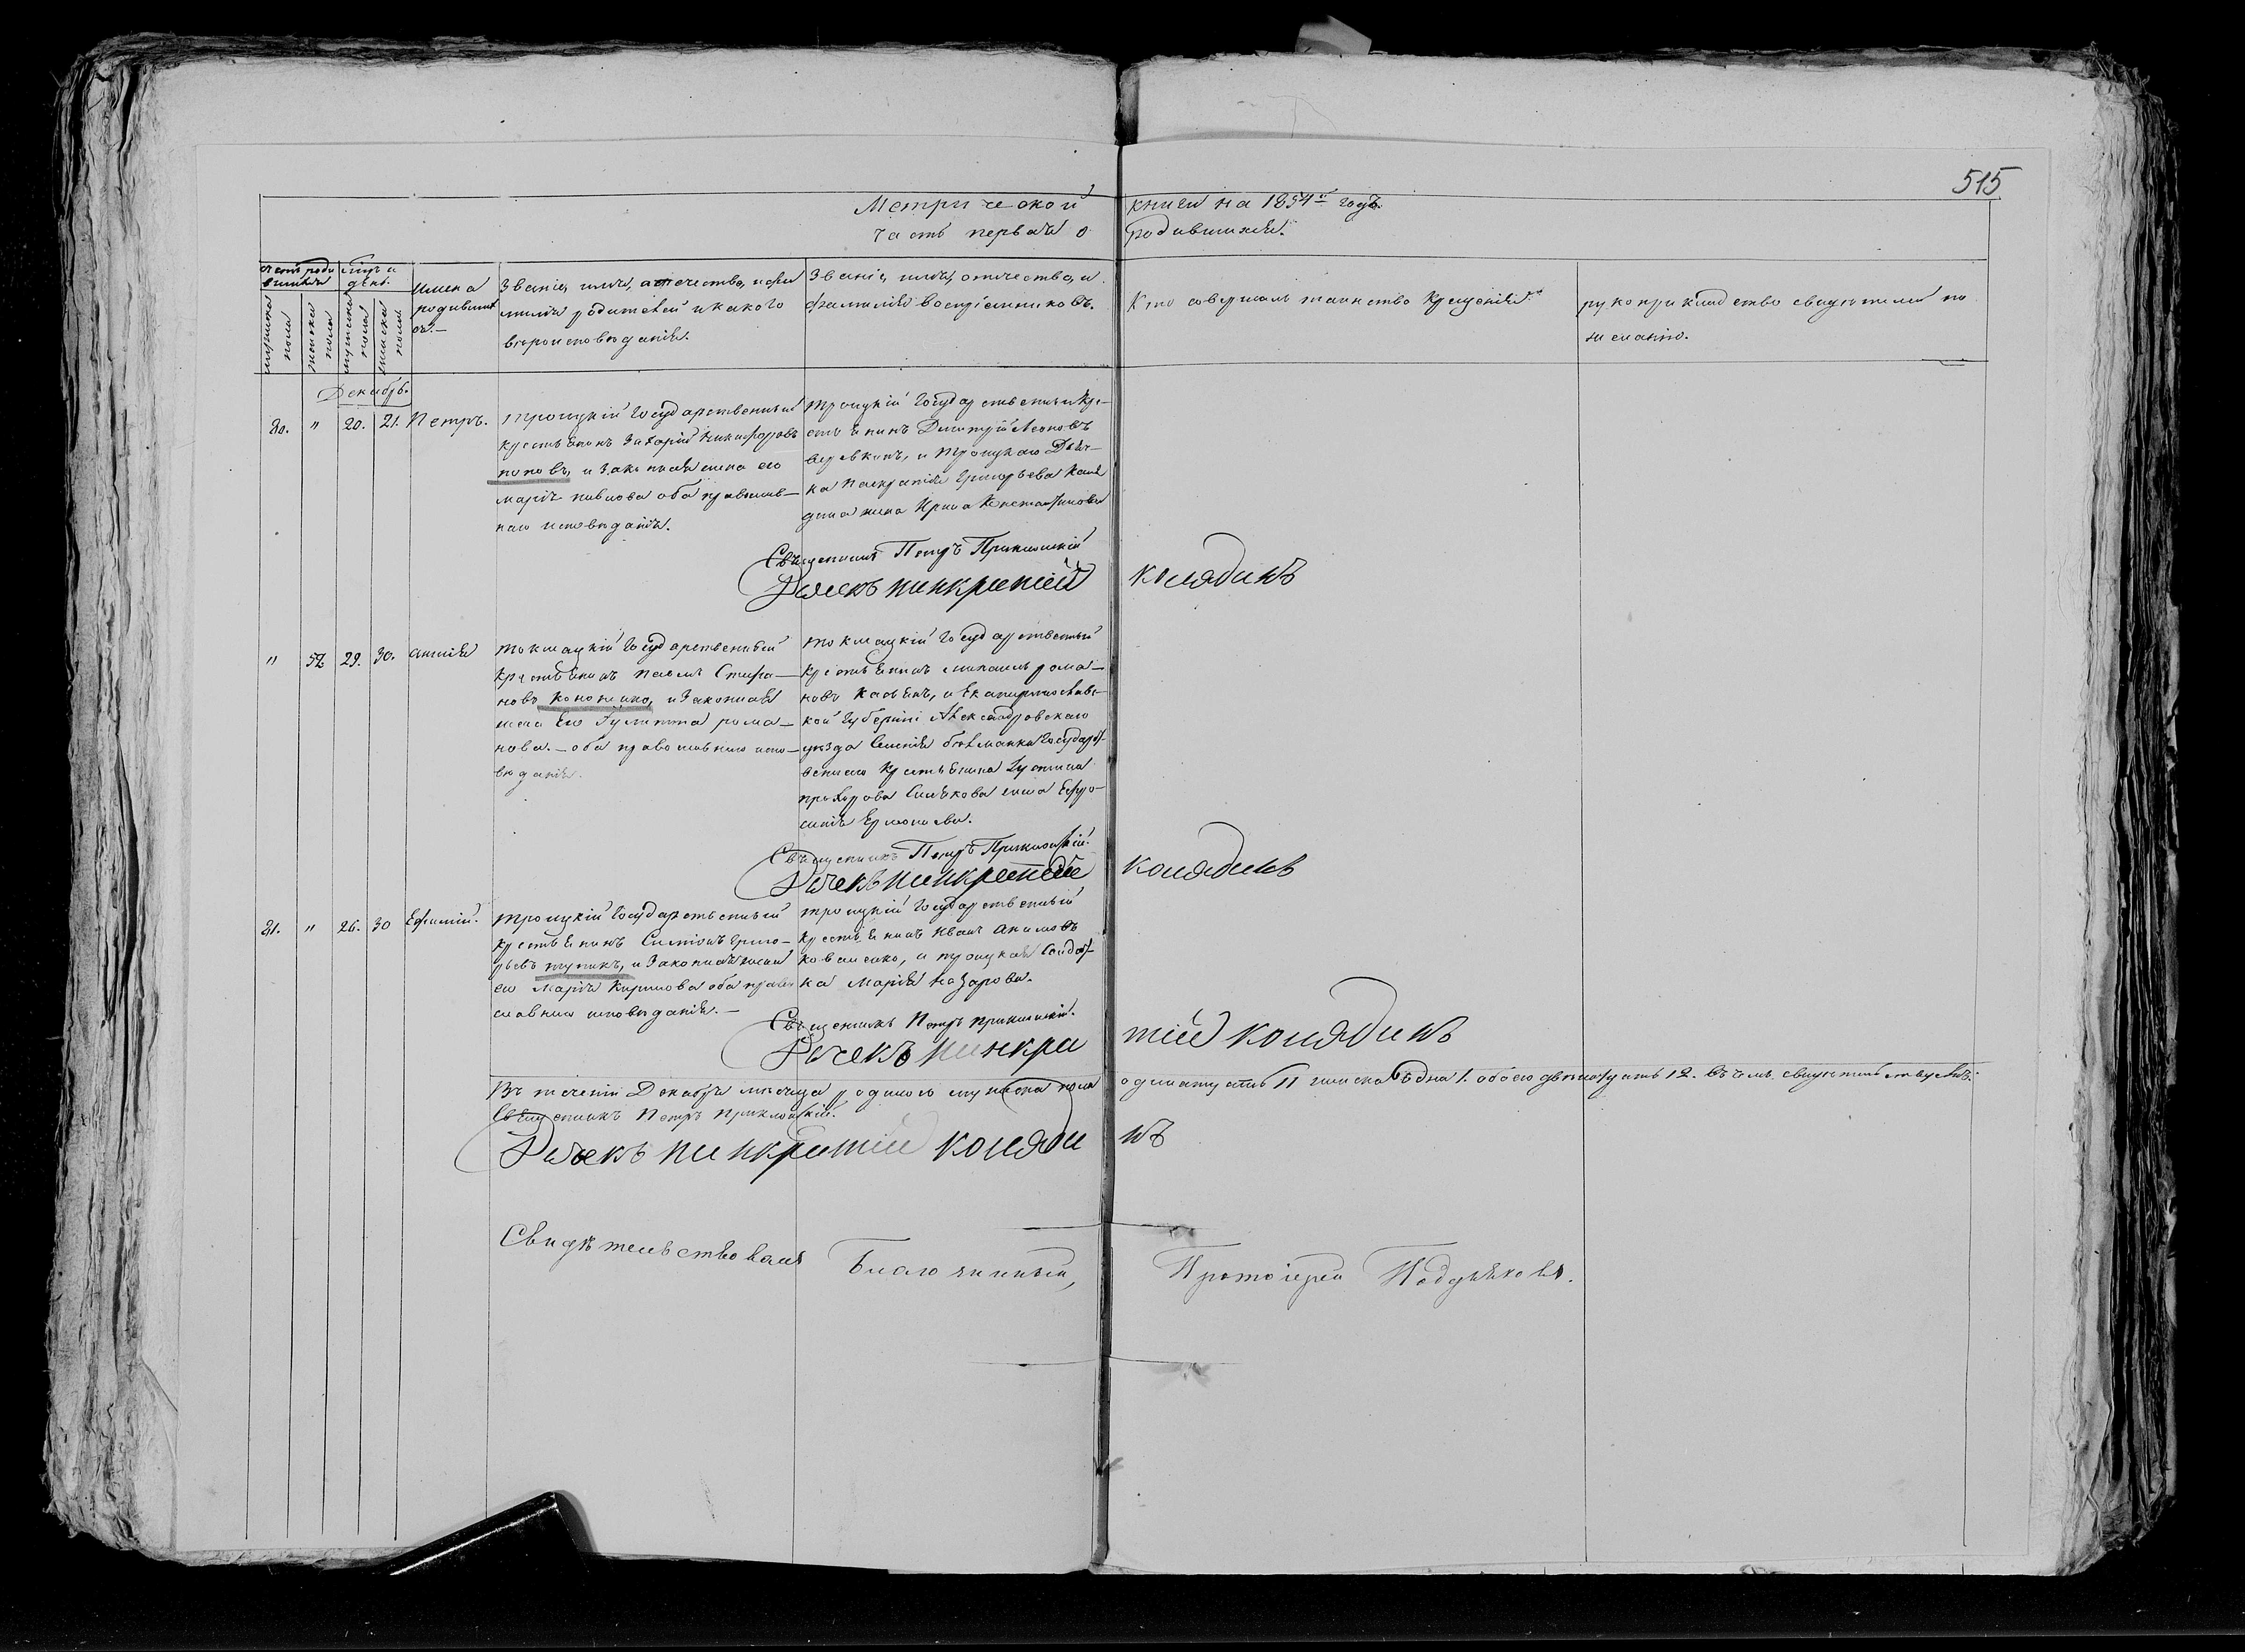 515
Метрической книги на 1854й годъ.
часть первая о родившихся.
счетъ роди
вшихся
мужеска пола
женска пола
Мѣсяцъ и
день.
мужеска пола
женска пола
имена
родивших
ся.—
Званіе, имя, отечество, и фа
милія родителей и какого
вѣроисповѣданія.
Званіе, имя, отечество, и
фамилія воспріемниковъ.
Кто совершалъ таинство Крещенія
рукоприкладство свидѣтелей по
желанію.
Декабрь.
80. " 20. 21. Петръ.
Троицкій Государственный
крестьянинъ Захарій Никифоровъ
поповъ, и Законная жена его
марія павлова оба православ—
наго исповѣданія.
Троицкій Государственный кре—
стьянинъ Димитрій Леоновъ
веревкинъ, и Троицкаго Дьяч—
ка Панкратія Григорьева Коля
дина жена Ирина Константинова
Священникъ Петръ Приклонскій
Дячекъ панкратій колядинъ
" 52 29. 30. анисія
токмацкій Государственный
крестьянинъ павелъ Стефа—
новъ кононенко, и Законная
жена Его Іулитта рома—
нова.— оба православнаго испо—
вѣданія.
токмацкій Государственный
крестьянинъ михаилъ рома—
новъ и Екатеринославс—
кой Губерніи Александровскаго
уѣзда Селенія Государст—
веннаго Крестьянина
прохорова жена Ефро—
синія
Священникъ Петръ Приклонскій.
Дячекъ панкратій колядинъ
81. " 26. 30 Ефимій.
троицкій Государственный
крестьянинъ Симіонъ Григо—
рьевъ тупикъ, и Законная жена
его Марія Кирилова оба право
славнаго исповѣданія.—
троицкій Государственный
крестьянинъ Иванъ Акимовъ
коваленко, и троицкая Солдат—
ка Марія Назарова.
Священникъ Петръ Приклонскій.
Дячекъ панкратій колядинъ
Въ теченіи Декабря мѣсяца родилось мужеска пола одинатцать 11 женска одна 1. обоего двенатцать 12. въ чемъ свидетельствуемъ:
Священникъ Петръ Приклонскій.
Дячекъ панкратій колядинъ
Свидѣтельствовалъ Благочинный, Протоіерей